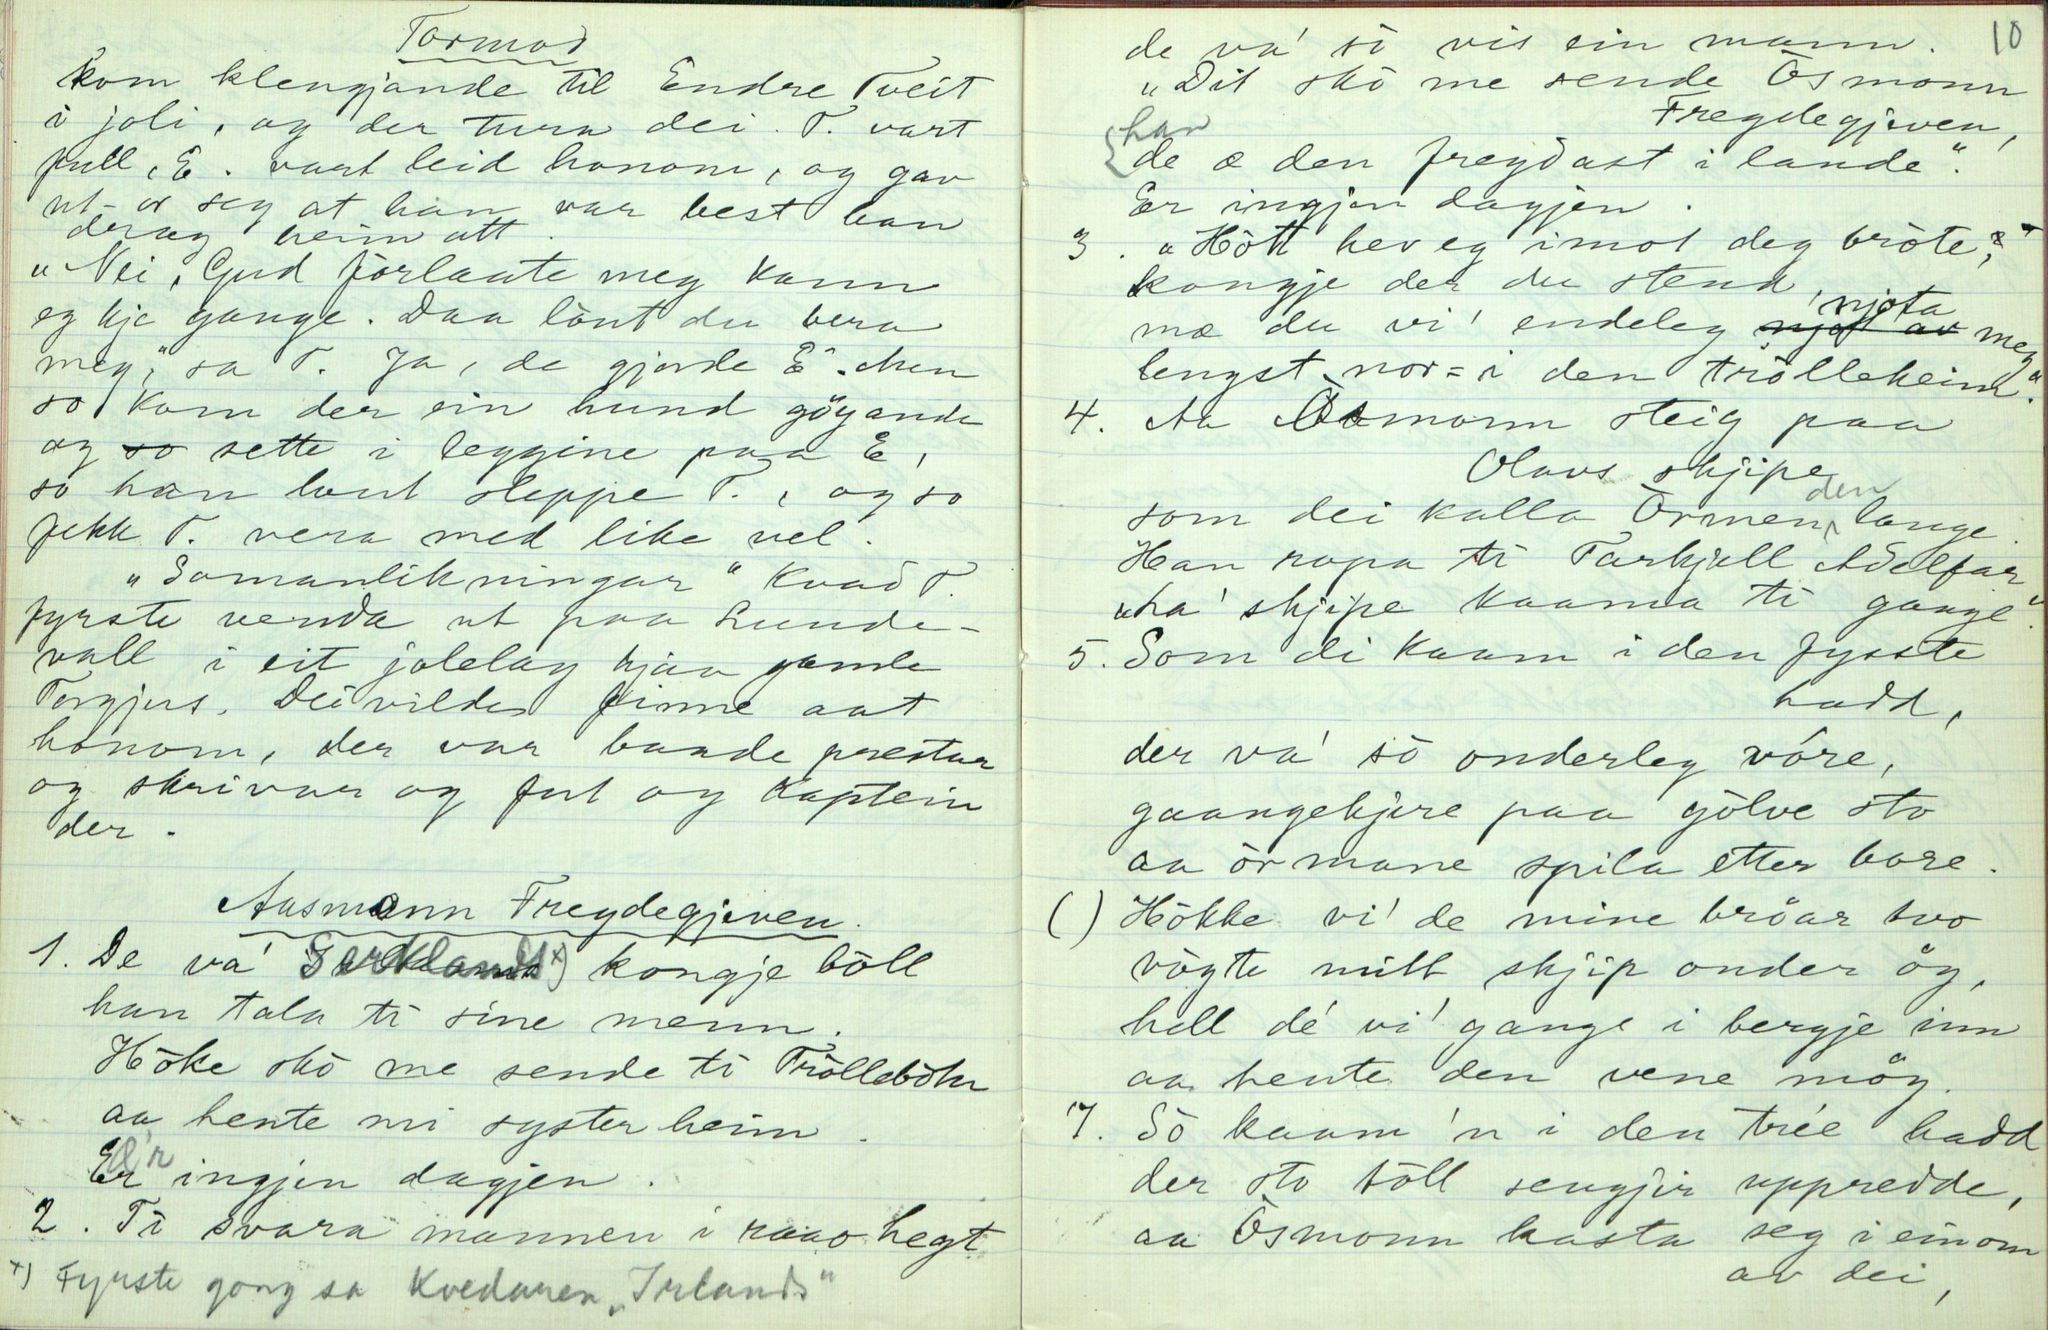 Tormod
kom klengjande til Endre Tveit
i joli, og der tura dei. T. vart
full, E. vart leid honom, og gav
ut-or seg at han var best han
derog heim att.
"Nei, Gud forlaate meg kann
eg kje gange. Daa lönt du bera
meg," sa T. Ja, de gjorde E. Men
so kom der ein hund göyande
og so sette i leggine paa E,
so han laut sleppe T., og so
fekk T. vera med like vel.
"Somanlikningar" kvad T.
fyrste venda ut paa Lunde-
vall i eit jolelag hjaa gamle
Torgjus. Dei vilde finne aat
honom, der var baade prestar
og skrivar og fut og kaptein
der.
Aasmonn Fregdegjeven.
1. De va' Serklands x) kongje böll
han tala ti sine menn.
Höke skò me sende ti Tròllebòtn
aa hente mi syster heim.
Er æ'r ingjen dagjen.
2. Ti svara mannen i raao hegt
x) Fyrste gong sa kvedaren "Irlands"
10
de va' sò vis ein mann.
"Dit skò me sende Òsmonn
Fregdegjeven,
{han
de æ den freydast i lande".
Er ingjen dagjen.
3. "Hòtt hev eg imot deg bròte,
kongje der du stend,
mæ du vi' endeleg njot av njota meg
lengst nor-i den tròlleheim."
4. Aa Òsmonn steig paa
Olavs skjipe
som dei kalla Òrmen den lange.
Han ropa ti Tarkjell Adelfar
"ha' skjipe kaama ti gange".
5. Som di kaam i den fysste
hadd,
der va' sò onderleg vóre,
gaangekjere paa gjòlve sto
aa òrmane spila etter bore.
( ) Hòkke vi' de mine bröar tvo
vògte mitt skjip onder öy,
hell dé vi' gange i bergje inn
aa hente den vene möy.
7. Sò kaam 'n i den trée hadd
der sto tòll sengjir uppredde,
aa Òsmonn kasta seg i einom
av dei,